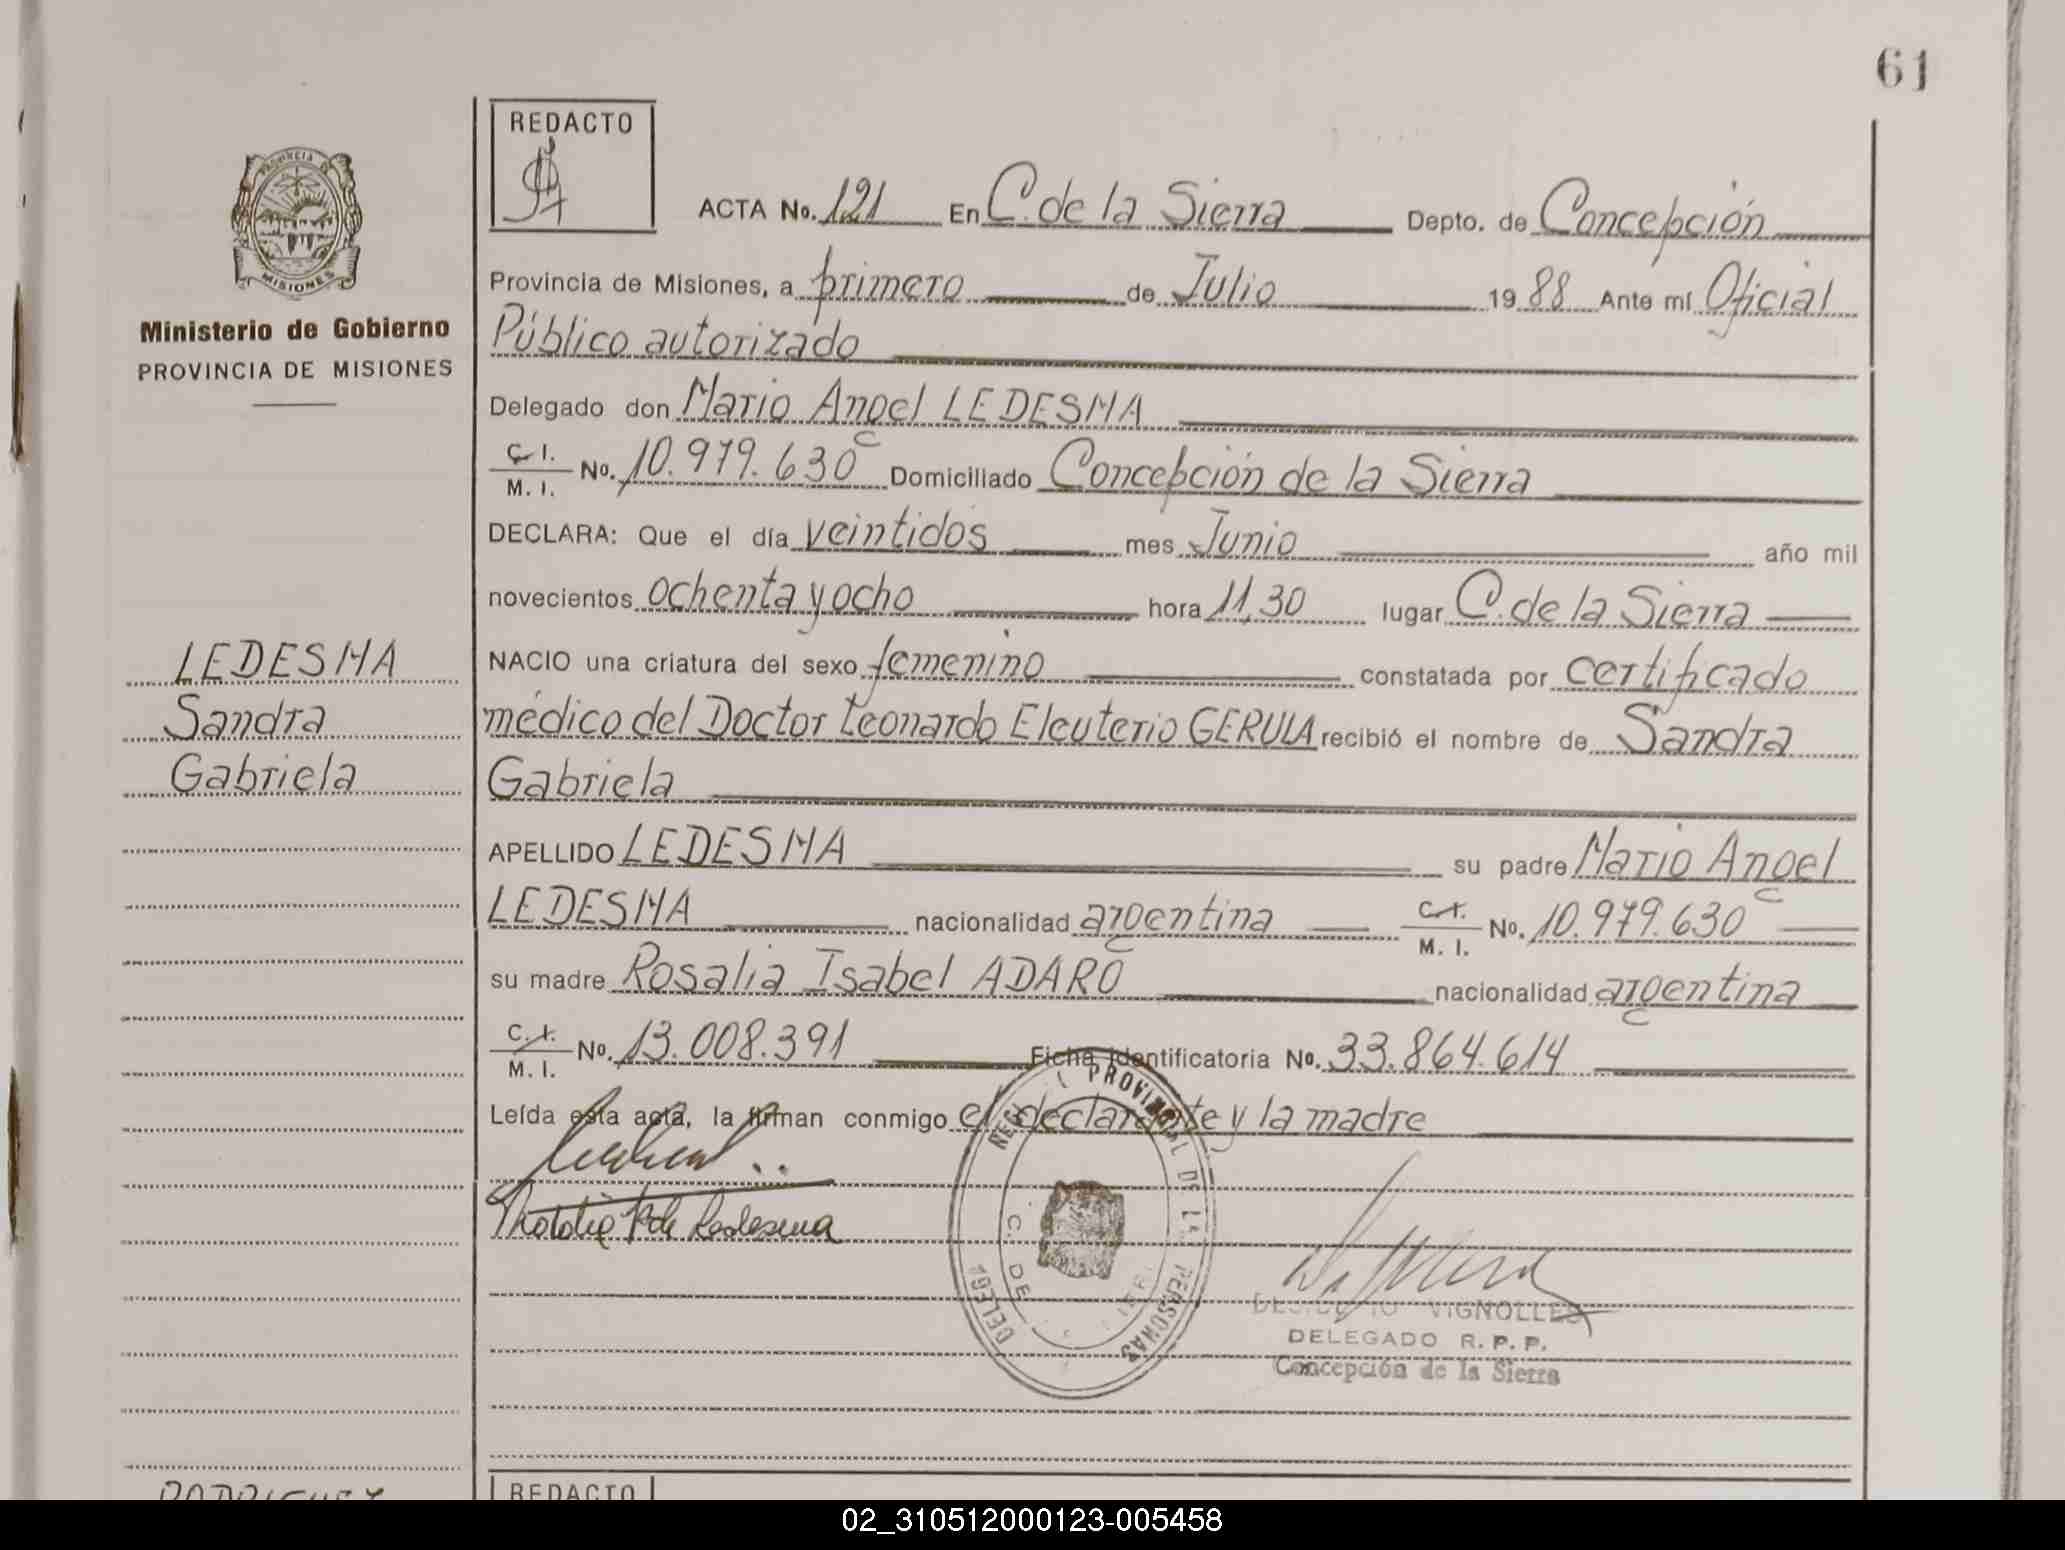 61
REDACTO
PROVINCIA DE
MISIONES
Ministerio de Gobierno
PROVINCIA DE MISIONES
ACTA No. 121 En C. de la Sierra Depto. de Concepción
Provincia de Misiones, a primero de Julio 1988 Ante mí Oficial
Público autorizado
Delegado don Mario Angel LEDESMA
C. I. M. I. No. 10.979.630 Domiciliado Concepción de la Sierra
DECLARA: Que el día veintidós mes Junio año mil
novecientos ochenta y ocho hora 11,30 lugar C. de la Sierra
NACIO una criatura del sexo femenino constatada por certificado
médico del Doctor Leonardo Eleuterio GERULA recibió el nombre de Sandra
Gabriela
APELLIDO LEDESMA su padre Mario Angel
LEDESMA nacionalidad argentina C. I. M. I. No. 10.979.630
su madre Rosalia Isabel ADARO nacionalidad argentina
C. I. M. I. No. 13.008.391 Ficha identificatoria No. 33.864.614
Leída esta acta, la firman conmigo el declarante y la madre
LEDESMA
Sandra
Gabriela
de Ledesma
PROVINCIAL DE LAS PERSONAS
C. DE
VIGNOLLES
DELEGADO R. P. P.
Concepción de la Sierra
RODRIGUEZ
REDACTO
02_310512000123-005458